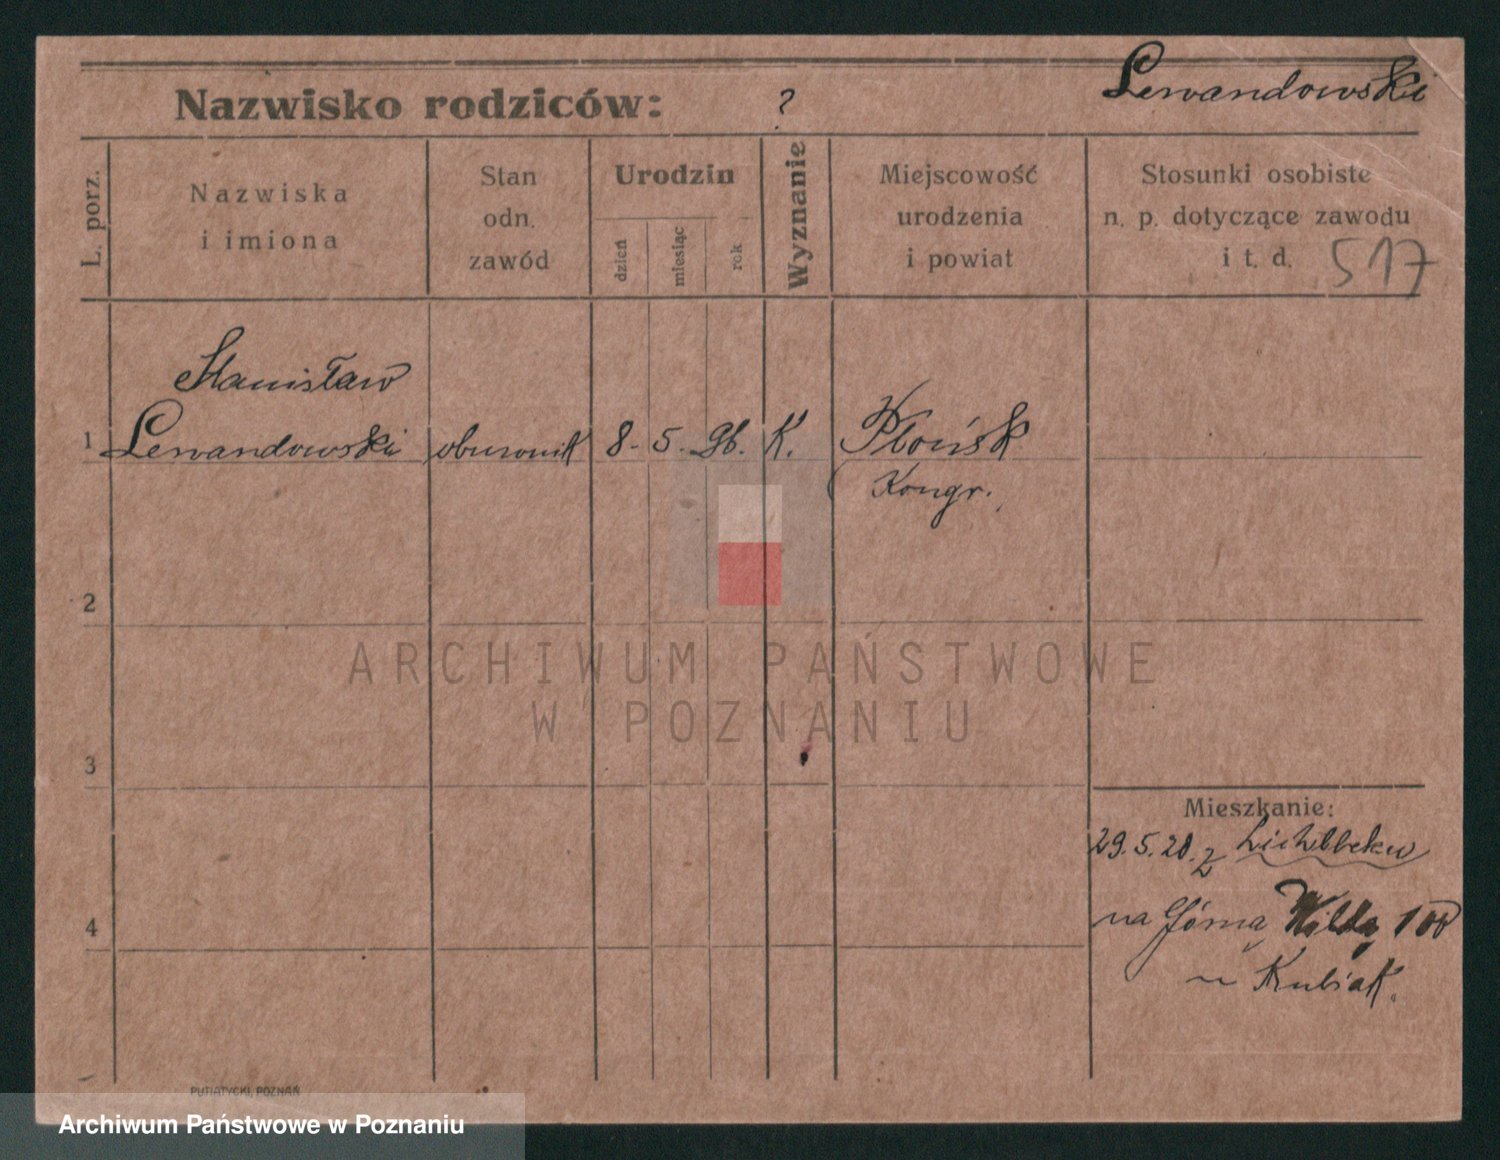 Lewandowski
Nazwisko rodziców: ?
L. porz.
Nazwiska
i imiona
Stan
odn.
zawód
Urodzin
dzień
miesiąc
rok
Wyznanie
Miejscowość
urodzenia
i powiat
Stosunki osobiste
n. p. dotyczące zawodu
i t. d.
517
Stanisław
1 Lewandowski oburonik 8. 5. 96. K. Płońsk
Kongr.
2
3
4
Mieszkanie:
29.5.20. z
na Górną Wildę 100
u Kubiak.
PUTIATYCKI, POZNAŃ
ARCHIWUM PAŃSTWOWE
W POZNANIU
Archiwum Państwowe w Poznaniu